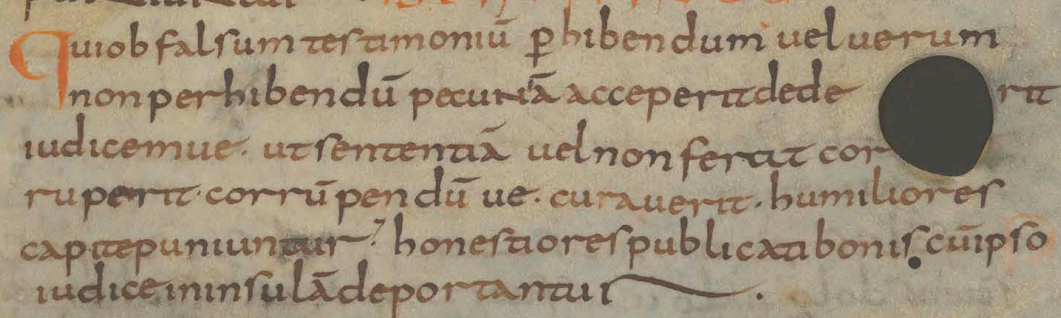 Quiob falsum testimoniū ꝑhibendum vel verum
non perhibendū pecuniā acceperit dede rit
iudicemve. ut sententiā vel non ferat cor
ruperit. corrūpendū ve. curaverit. humiliores
capite puniuntur; honestiores publicati bonis. cū ipso
iudice in insulā deportantur.